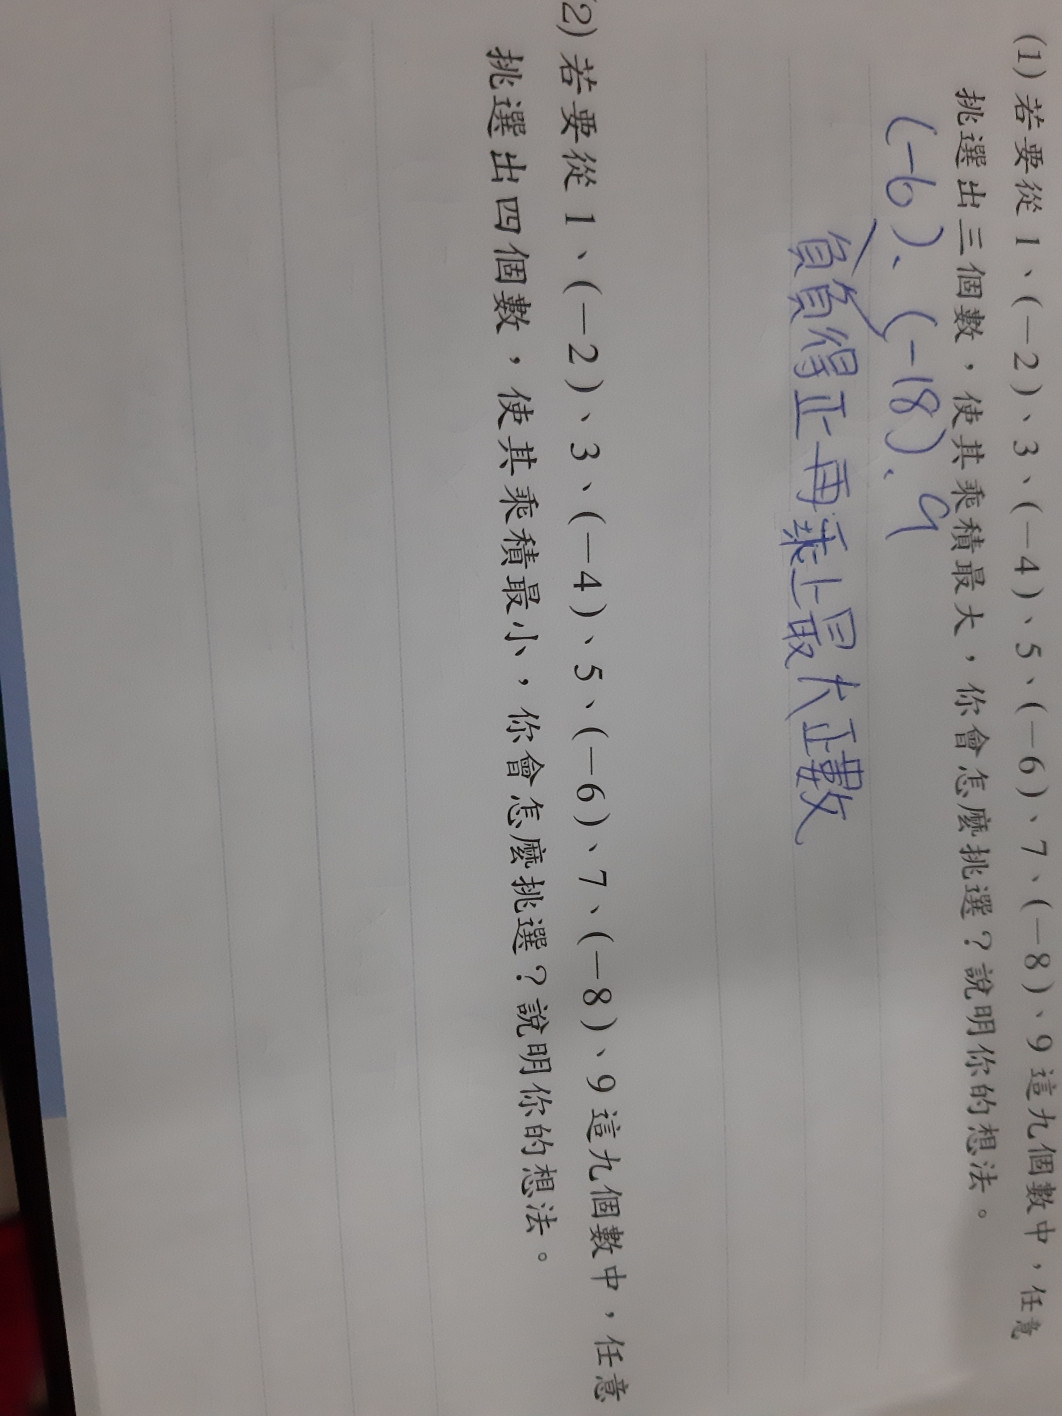 (1) 若要從 1、(－2)、3、(－4)、5、(－6)、7、(－8)、9 這九個數中，任意
挑選出三個數，使其乘積最大，你會怎麼挑選？說明你的想法。
(-6)、(-18)、9
負負得正再乘上最大正數
2) 若要從 1、(－2)、3、(－4)、5、(－6)、7、(－8)、9 這九個數中，任意
挑選出四個數，使其乘積最小，你會怎麼挑選？說明你的想法。